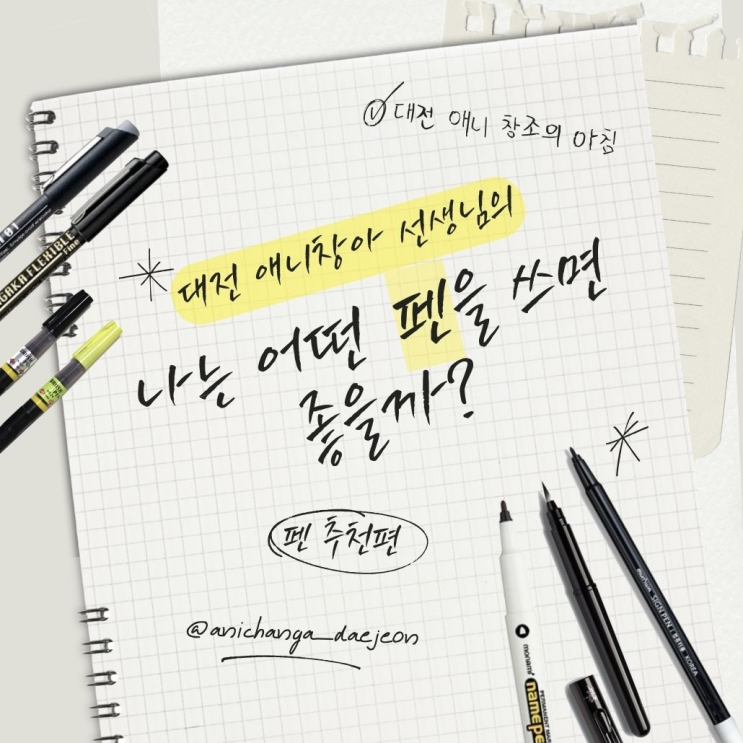 대전 애니 창조의 아침
대전 애니창아 선생님의
나는 어떤 펜을 쓰면
좋을까?
펜 추천편
@anichanga_daejeon
FLEXIBLE
Fine
monami
namepe
monami SIGN PEN
KOREA